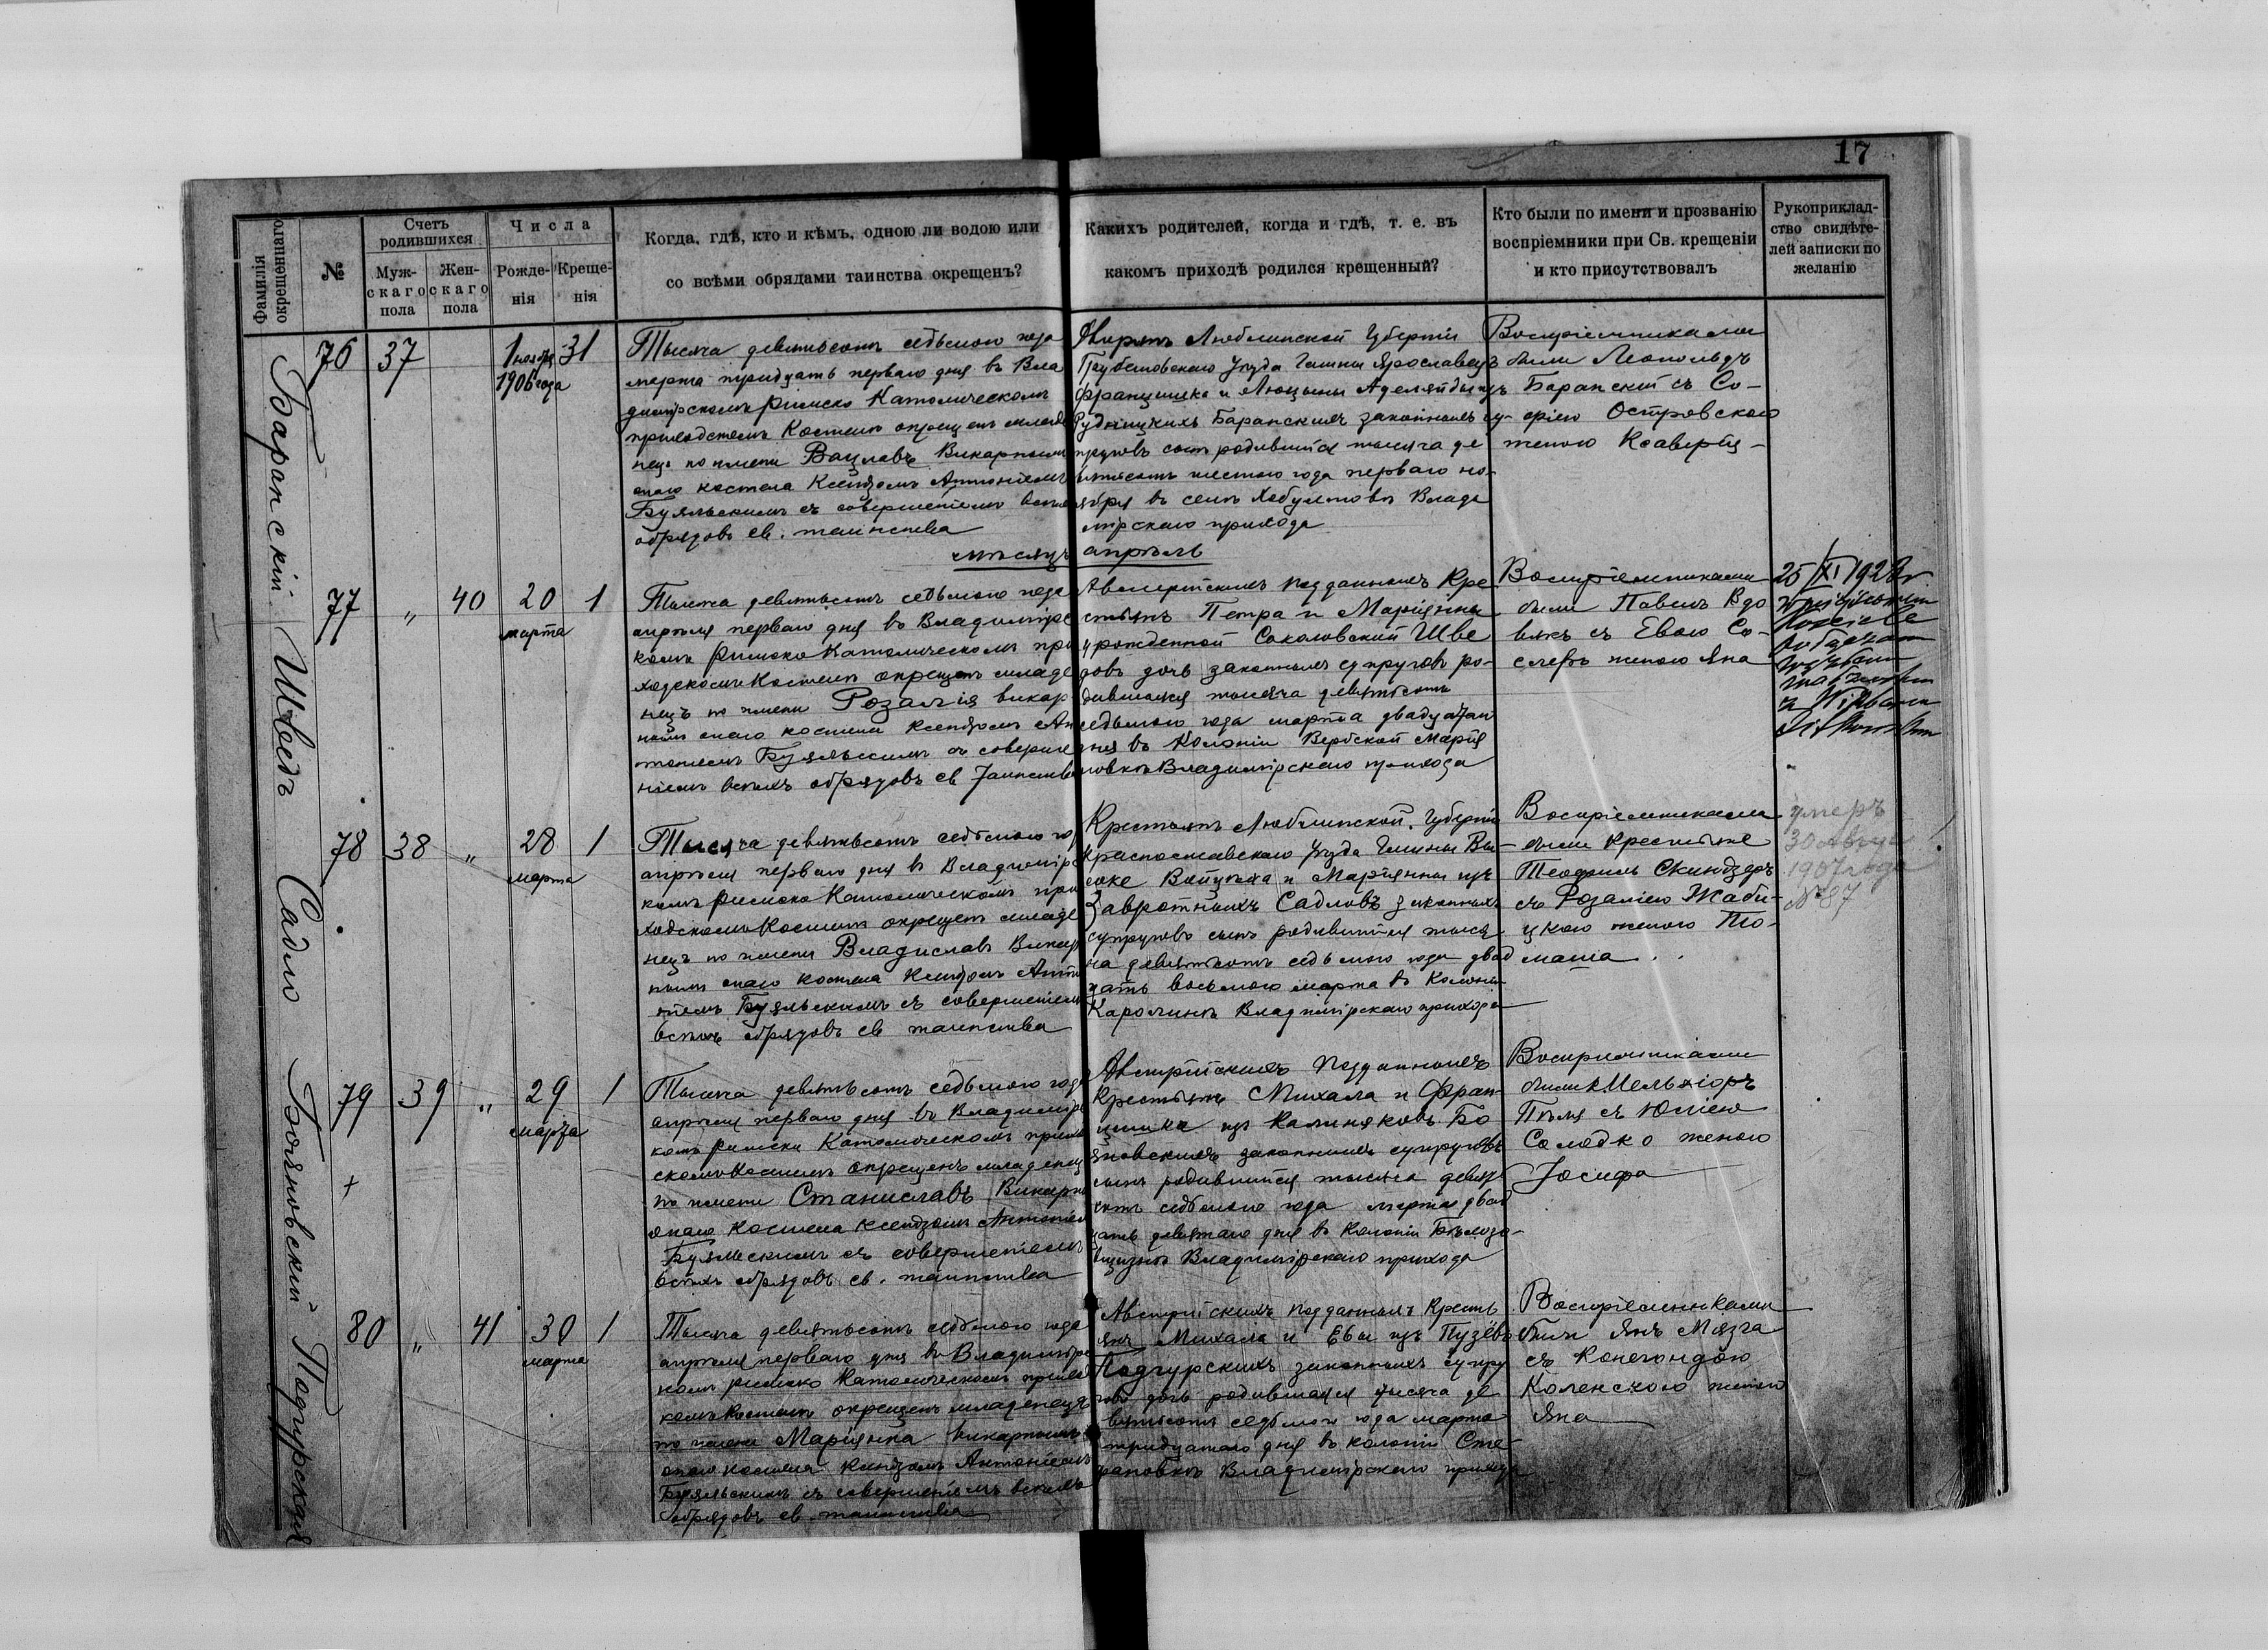 17
Фамилія окрещеннаго
№
Счетъ родившихся
Муж-
скаго
пола
Жен-
скаго
пола
Числа
Рожде-
нія
Креще-
нія
Когда, гдѣ, кто и кѣмъ, одною ли водою или
со всѣми обрядами таинства окрещенъ?
Какихъ родителей, когда и гдѣ, т. е. въ
какомъ приходѣ родился крещенный?
Кто были по имени и прозванію
воспріемники при Св. крещеніи
и кто присутствовалъ
Рукоприклад-
ство свидѣте-
лей записки по
желанію
Баранскій
76
37
1 ноября
1906 года
31
Тысяча девятьсотъ седьмого года
марта тридцать перваго дня въ Вла
димірскомъ Римско Католическомъ
приходскомъ Костелѣ окрещенъ младе
нецъ по имени Вацлавъ Викарнымъ
онаго костела Ксендзомъ Антоніемъ
Буяльскимъ съ совершеніемъ всѣхъ
обрядовъ св. таинства
Дворянъ Люблинской Губерніи
Грубешовскаго Уѣзда Гмины Ярославецъ
Францишка и Люцыны Аделяйды изъ
Рудницкихъ Баранскихъ законныхъ су-
пруговъ сынъ родившійся тысяча де
вятьсотъ шестого года перваго но-
ября въ селѣ Хобултовѣ Влади
мірскаго прихода
Воспріемниками
были Леопольдъ
Баранскій съ Со-
фіею Островскою
женою Ксаверія
мѣсяцъ апрѣль
Шведъ
77
"
40
20
марта
1
Тысяча девятьсотъ седьмого года
апрѣля перваго дня въ Владимірс
комъ Римско Католическомъ при
ходскомъ Костелѣ окрещенъ младе
нецъ по имени Розалія викар
нымъ онаго костела Ксендзомъ Ан
тоніемъ Буяльскимъ съ соверше
ніемъ всѣхъ обрядовъ св Таинства
Австрійскихъ подданныхъ Кре
стьянъ Петра и Маріянны
урожденной Соколовской Шве
довъ дочь законныхъ супруговъ ро-
дившаяся тысяча девятьсотъ
седьмого года марта двадцатаго
дня въ Колоніи Вербской Марія
новкѣ Владимірскаго прихода
Воспріемниками
были Павелъ Вдо
вякъ съ Евою Со-
женою Яна
25/XI 1928 r.
Садло
78
38
"
28
марта
1
Тысяча девятьсотъ седьмого го
апрѣля перваго дня въ Владимірс
комъ Римско Католическомъ при
ходскомъ Костелѣ окрещенъ младе
нецъ по имени Владиславъ Викар
нымъ онаго костела Ксендзомъ Анто
ніемъ Буяльскимъ съ совершеніемъ
всѣхъ обрядовъ св таинства
Крестьянъ Люблинской Губерніи
Красноставскаго Уѣзда Гмины Вы-
соке Войцѣха и Маріянны изъ
Завротныхъ Садловъ законныхъ
супруговъ сынъ родившійся тыся
ча девятьсотъ седьмого года двад
цать восьмого марта въ Колоніи
Каролинкѣ Владимірскаго прихода
Воспріемниками
были крестьяне
Теофиль Скиндзеръ
съ Розаліею Жаби-
цкою женою То-
маша
умеръ
30 Августа
1907 года
№ 87
Бояновскій
79
+
39
"
29
марта
1
Тысяча девятьсотъ седьмого года
апрѣля перваго дня въ Владимірс
комъ Римско Католическомъ приход
скомъ Костелѣ окрещенъ младенецъ
по имени Станиславъ Викарны
онаго Костела Ксендзомъ Антоніем
Буяльскимъ съ совершеніемъ
всѣхъ обрядовъ св. таинства
Австрійскихъ Подданныхъ
Крестьянъ Михала и Фран-
цишки изъ Калиняковъ Бо
яновскихъ законныхъ супруговъ
сынъ родившійся тысяча девять
сотъ седьмого года марта двад
цать девятаго дня въ Колоніи Бѣлоза-
вщизнѣ Владимірскаго прихода
Воспріемниками
были Мельхіоръ
Пѣля съ Юліею
Солодко женою
Іосифа
Подгурская
80
"
41
30
марта
1
Тысяча девятьсотъ седьмого года
апрѣля перваго дня въ Владимірс
комъ Римско Католическомъ приход
комъ Костелѣ окрещенъ младенецъ
по имени Маріянна викарнымъ
онаго костела Ксендзомъ Антоніемъ
Буяльскимъ съ совершеніемъ всѣхъ
обрядовъ св таинства
Австрійскихъ подданныхъ Кресть
янъ Михаила и Евы изъ Пузёвъ
Подгурскихъ законныхъ супру
говъ дочь родившаяся тысяча де
вятьсотъ седьмого года марта
тридцатаго дня въ колоніи Сте-
фановкѣ Владимірскаго прихода
Воспріемниками
были Янъ Мязга
съ Конегондою
Коленскою женою
Яна